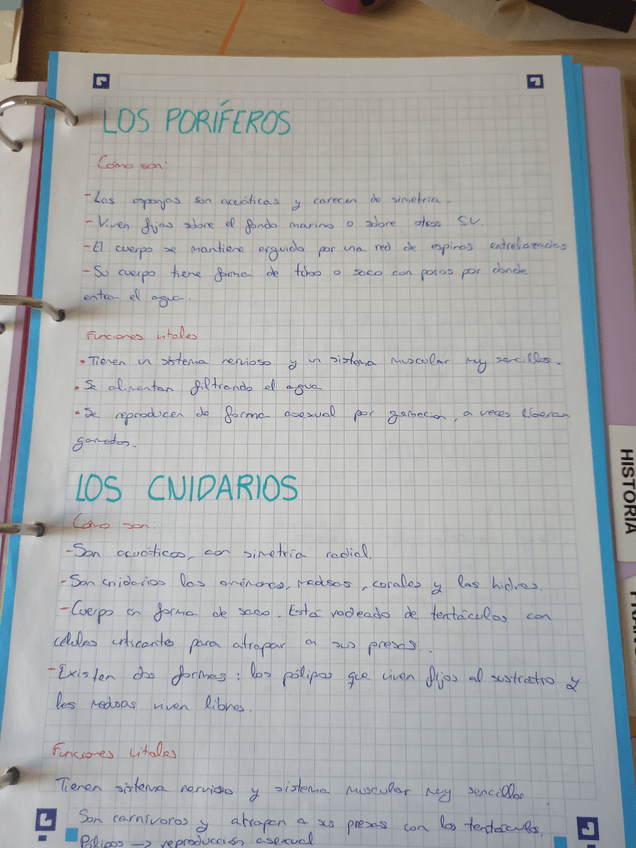 LOS PORÍFEROS
Cómo son:
- Las esponjas son acuáticas y carecen de simetría.
- Viven fijas sobre el fondo marino o sobre otros S.V.
- El cuerpo se mantiene erguido por una red de espinas entrelazadas
- Su cuerpo tiene forma de tubo o saco con poros por donde
entra el agua.
Funciones vitales
• Tienen un sistema nervioso y un sistema muscular muy sencillos.
• Se alimentan filtrando el agua
• Se reproducen de forma asexual por gemación, a veces liberan
gametos.
LOS CNIDARIOS
Cómo son:
- Son acuáticos, con simetría radial.
- Son cnidarios las anémonas, medusas, corales y las hidras.
- Cuerpo en forma de saco. Está rodeado de tentáculos con
células urticantes para atrapar a sus presas.
- Existen dos formas: los pólipos que viven fijos al sustrato y
las medusas viven libres.
Funciones vitales
Tienen sistema nervioso y sistema muscular muy sencillos
Son carnívoros y atrapan a sus presas con los tentáculos.
Pólipos → reproducción asexual
HISTORIA